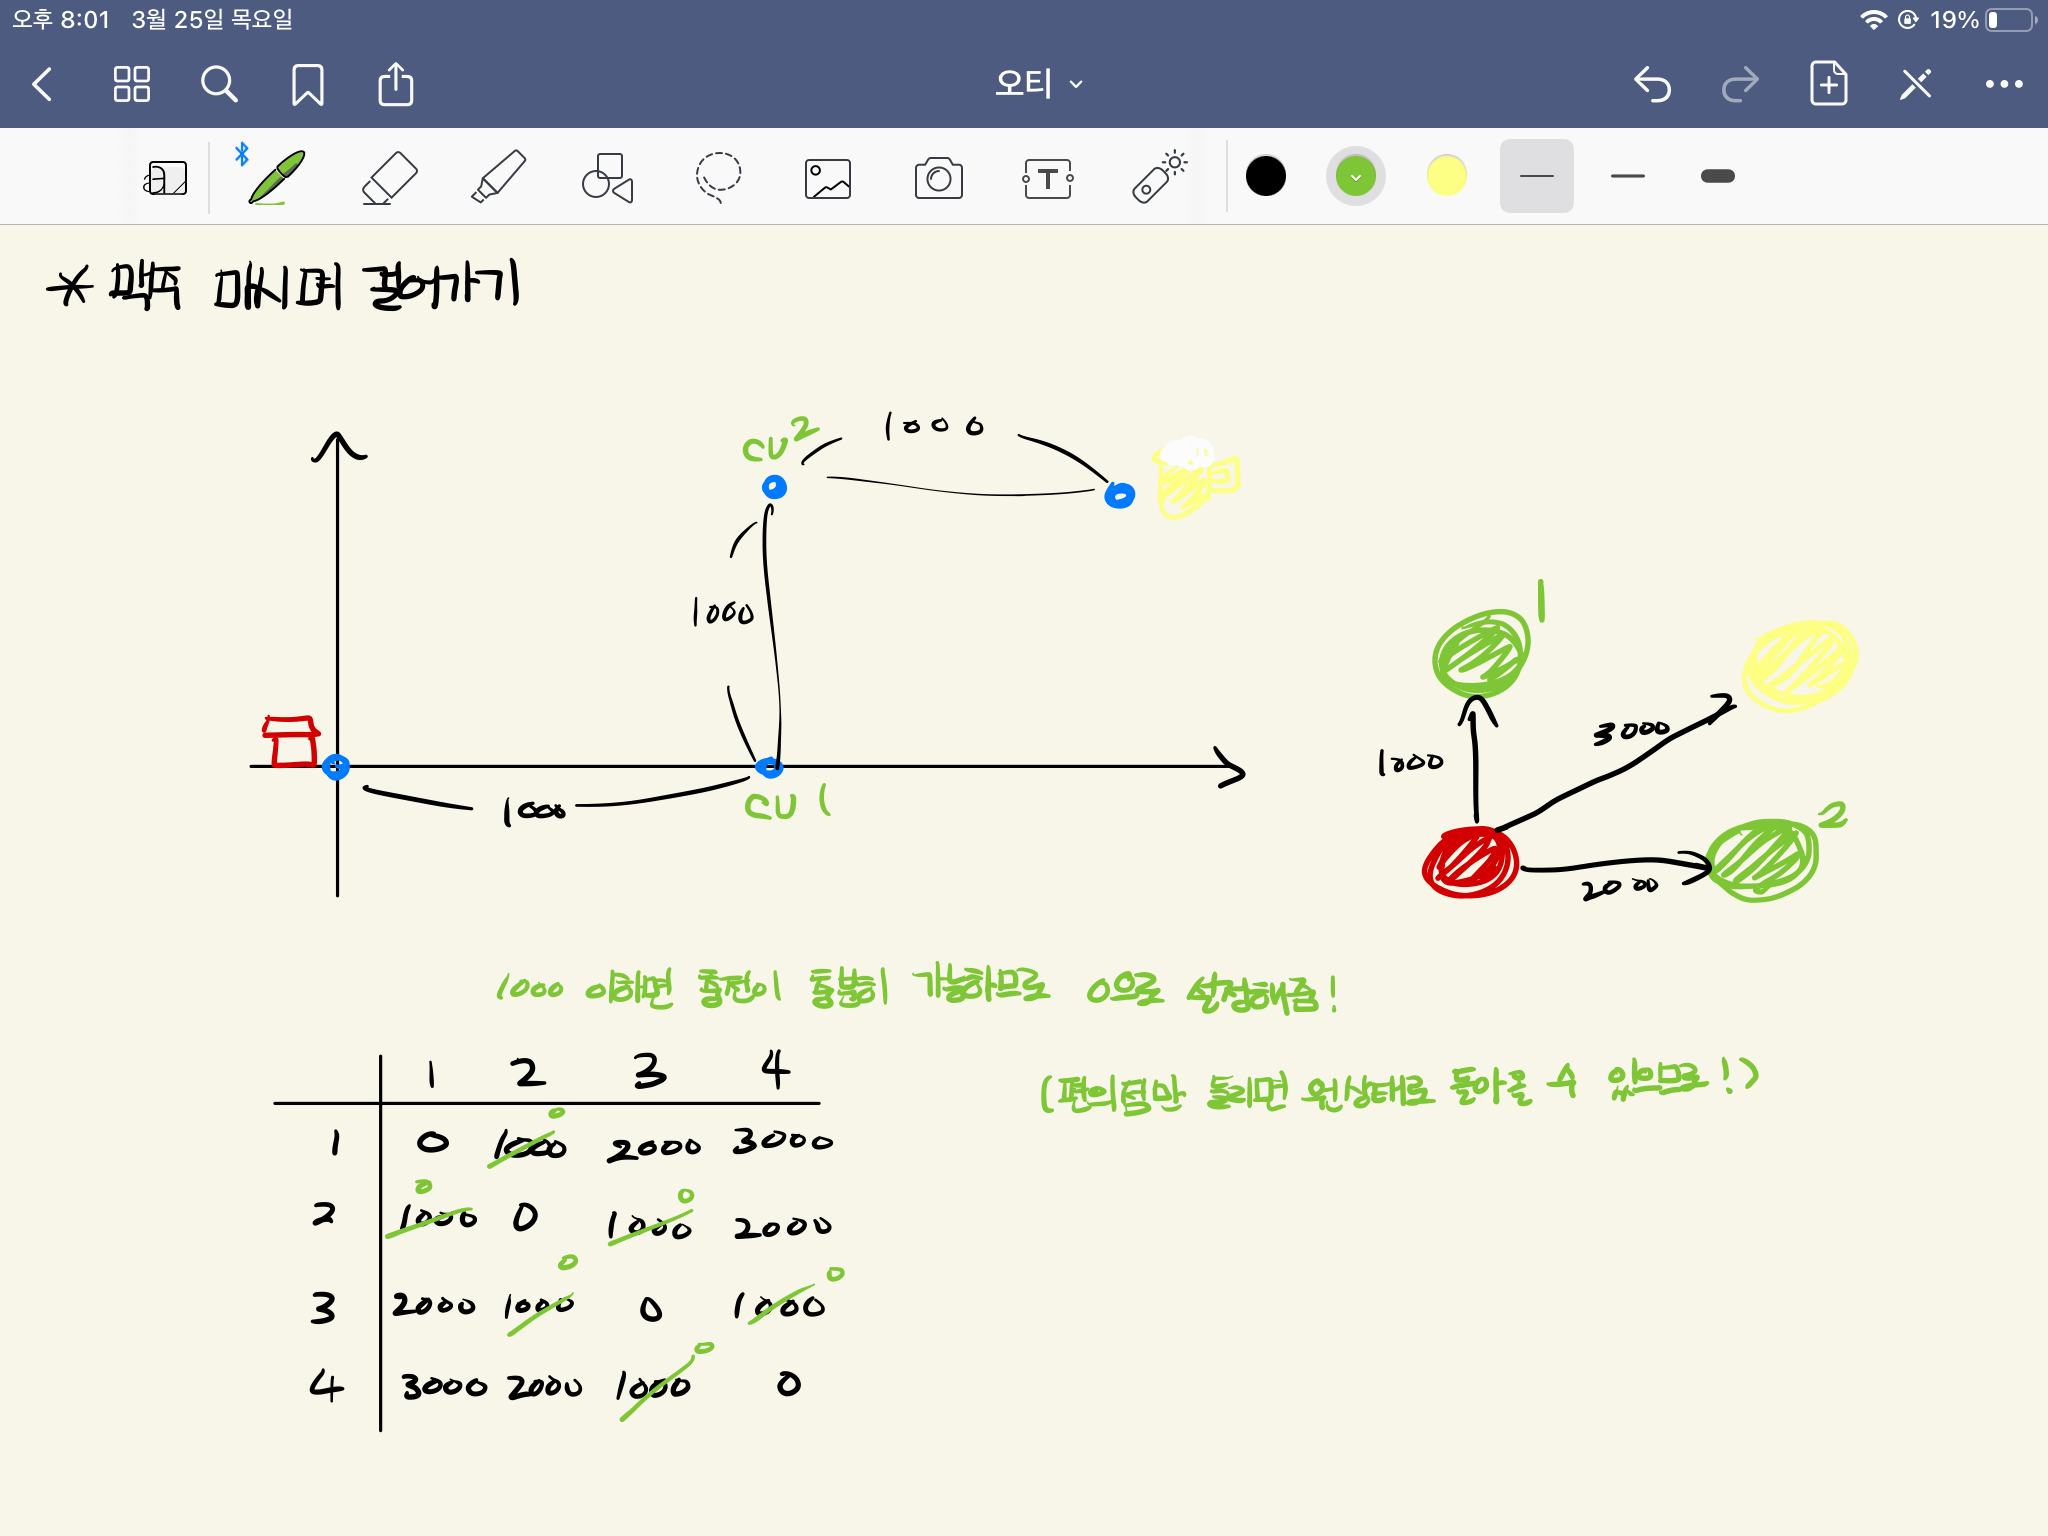 오후 8:01 3월 25일 목요일
19%
오티
T
* 맥주 마시며 걸어가기
CU 2
1000
1000
1000
CU 1
1
3000
1000
2
2000
1000 이하면 충전이 충분히 가능하므로 0으로 설정해줌!
(편의점만 들리면 원상태로 돌아올 수 있으므로!)
1 2 3 4
0
1 0 1000 2000 3000
0 0
2 1000 0 1000 2000
0 0
3 2000 1000 0 1000
0
4 3000 2000 1000 0